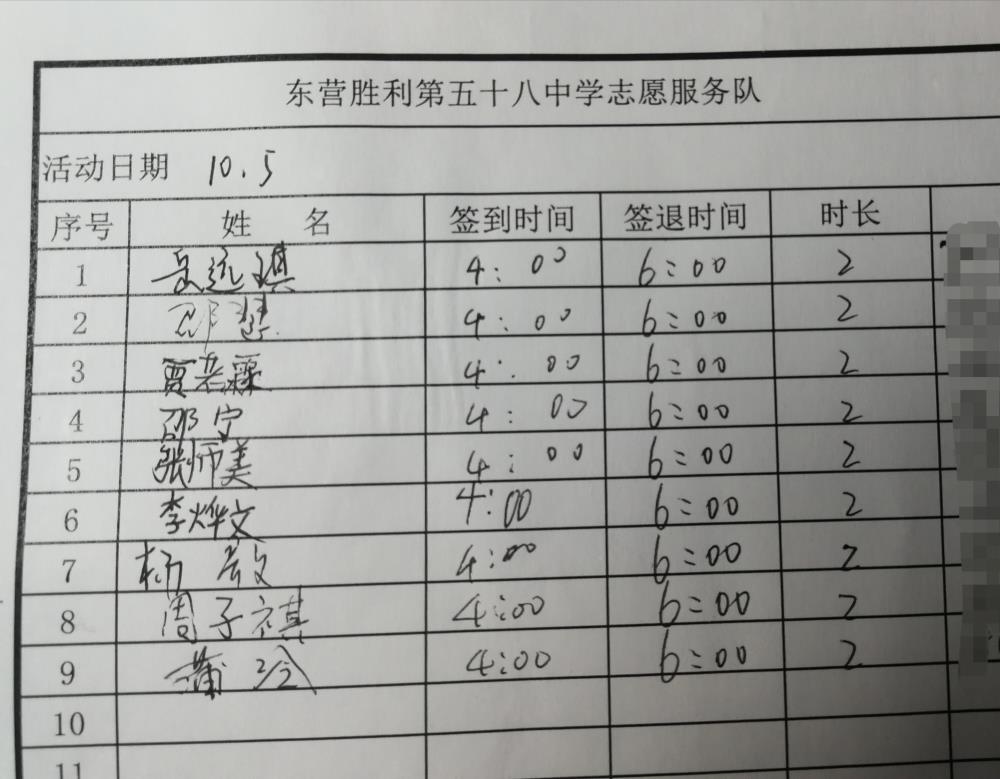 东营胜利第五十八中学志愿服务队
活动日期 10.5
序号 姓 名 签到时间 签退时间 时长
1 4:00 6:00 2
2 4:00 6:00 2
3 4:00 6:00 2
4 邵宁 4:00 6:00 2
5 张师美 4:00 6:00 2
6 李烨文 4:00 6:00 2
7 杨 4:00 6:00 2
8 周子祺 4:00 6:00 2
9 蒲 4:00 6:00 2
10
11